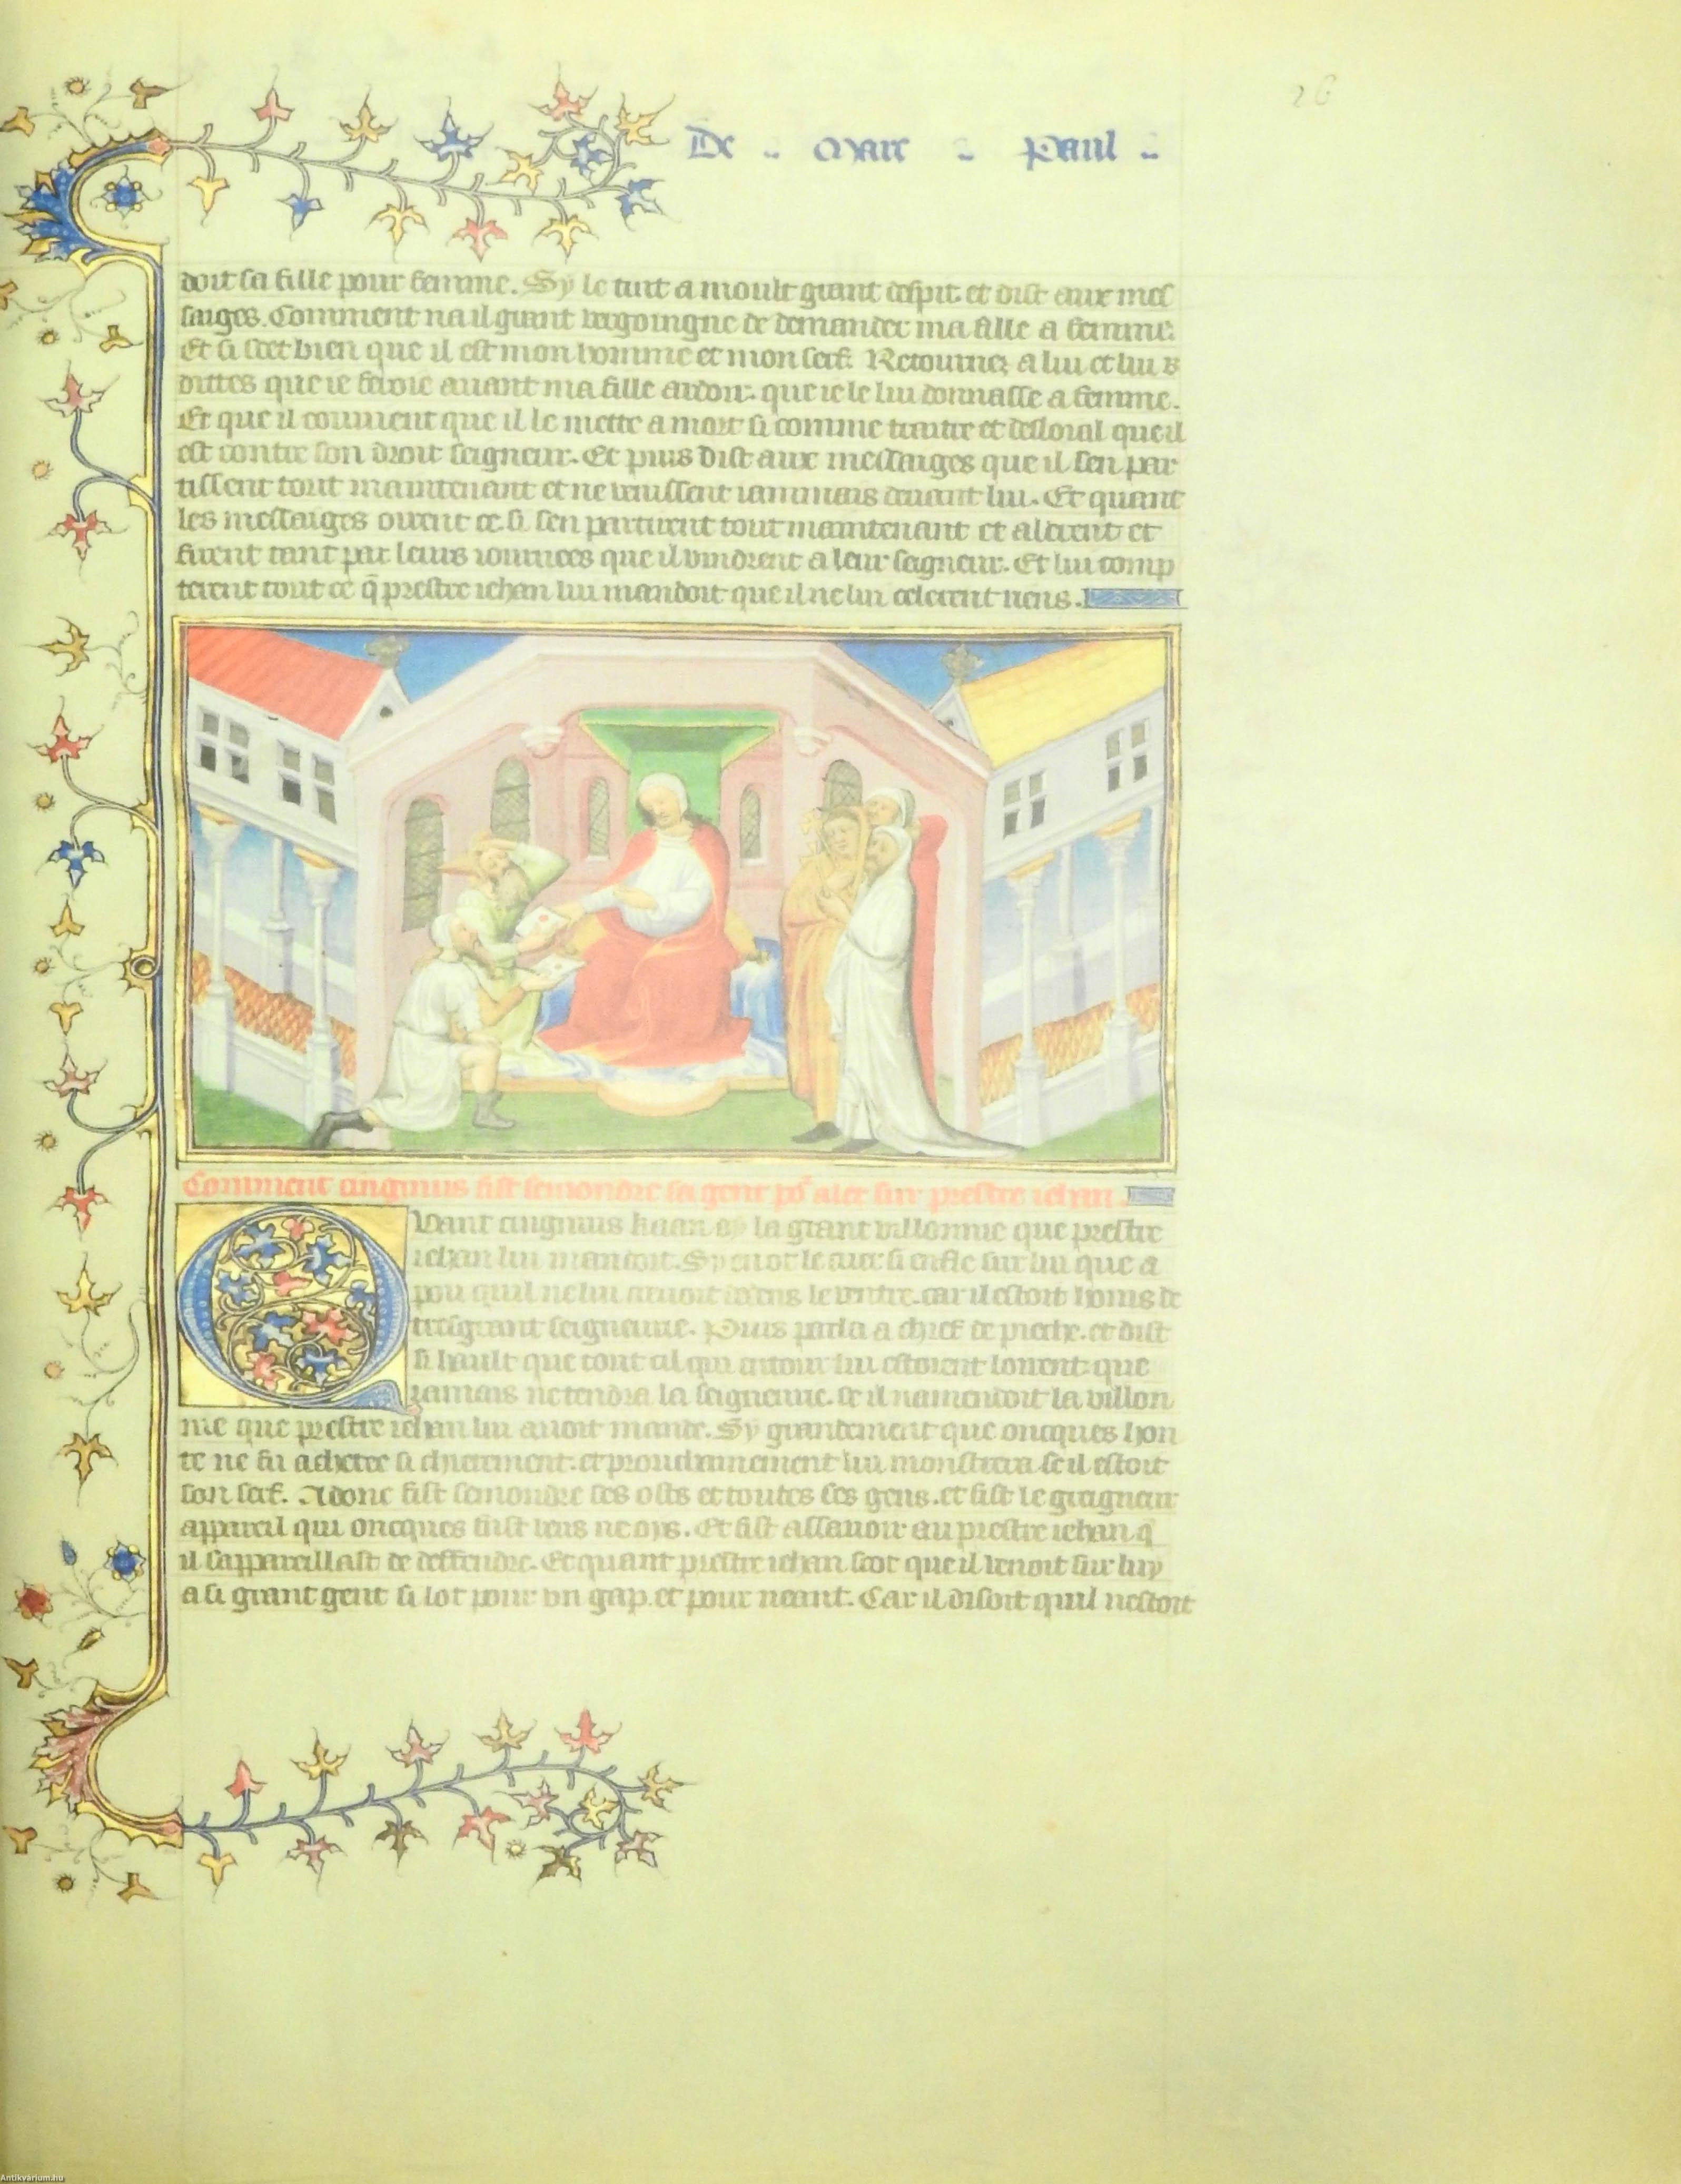 26
De .. Marc .. Paul ..
doit sa fille pour femme. Sy le tint a moult grant despit. et dist aux mes
saiges. Comment na il grant vergoingne de demander ma fille a femme.
Et si scet bien que il est mon homme et mon serf. Retournez a lui et lui
dittes que ie feroie auant ma fille ardoir. que ie le lui donnasse a femme.
Et que il conuient que il le mette a mort si comme traitre et desloial que il
est contre son droit seigneur. Et puis dist aux messaiges que il sen par
tissent tout maintenant et ne venissent iammais deuant lui. Et quant
les messaiges oirent ce. si sen partirent tout maintenant et alerent et
firent tant par leurs iournees que il vindrent a leur seigneur. Et lui comp
terent tout ce q̄ prestre iehan lui mandoit que il ne lui celerent riens.
Comment cinguins fist semondre sa gent por aler sur prestre iehan.
Quant cinguins kaan oy la grant villonnie que prestre
iehan lui mandoit. Sy en ot le cuer si enfle sur lui que a
pou quil ne lui creuoit dedens le ventre. car il estoit homs de
tresgrant seigneurie. Puis parla a chief de piece. et dist
si hault que tout cil qui entour lui estoient loirent. que
iamais ne tendra la seigneurie. se il namendoit la villon
nie que prestre iehan lui auoit mande. Sy grandement que oncques hon
te ne fu achetee si chierement. et prouchainement lui monstrera se il estoit
son serf. Adonc fist semondre ses osts et toutes ses gens. et fist le greigneur
appareil qui oncques fust veus ne oys. Et fist assauoir au prestre iehan q̄
il sappareillast de deffendre. Et quant prestre iehan scot que il venoit sur luy
a si grant gent si lot pour vn gap. et pour neant. Car il disoit quil nestoit
Antikvárium.hu